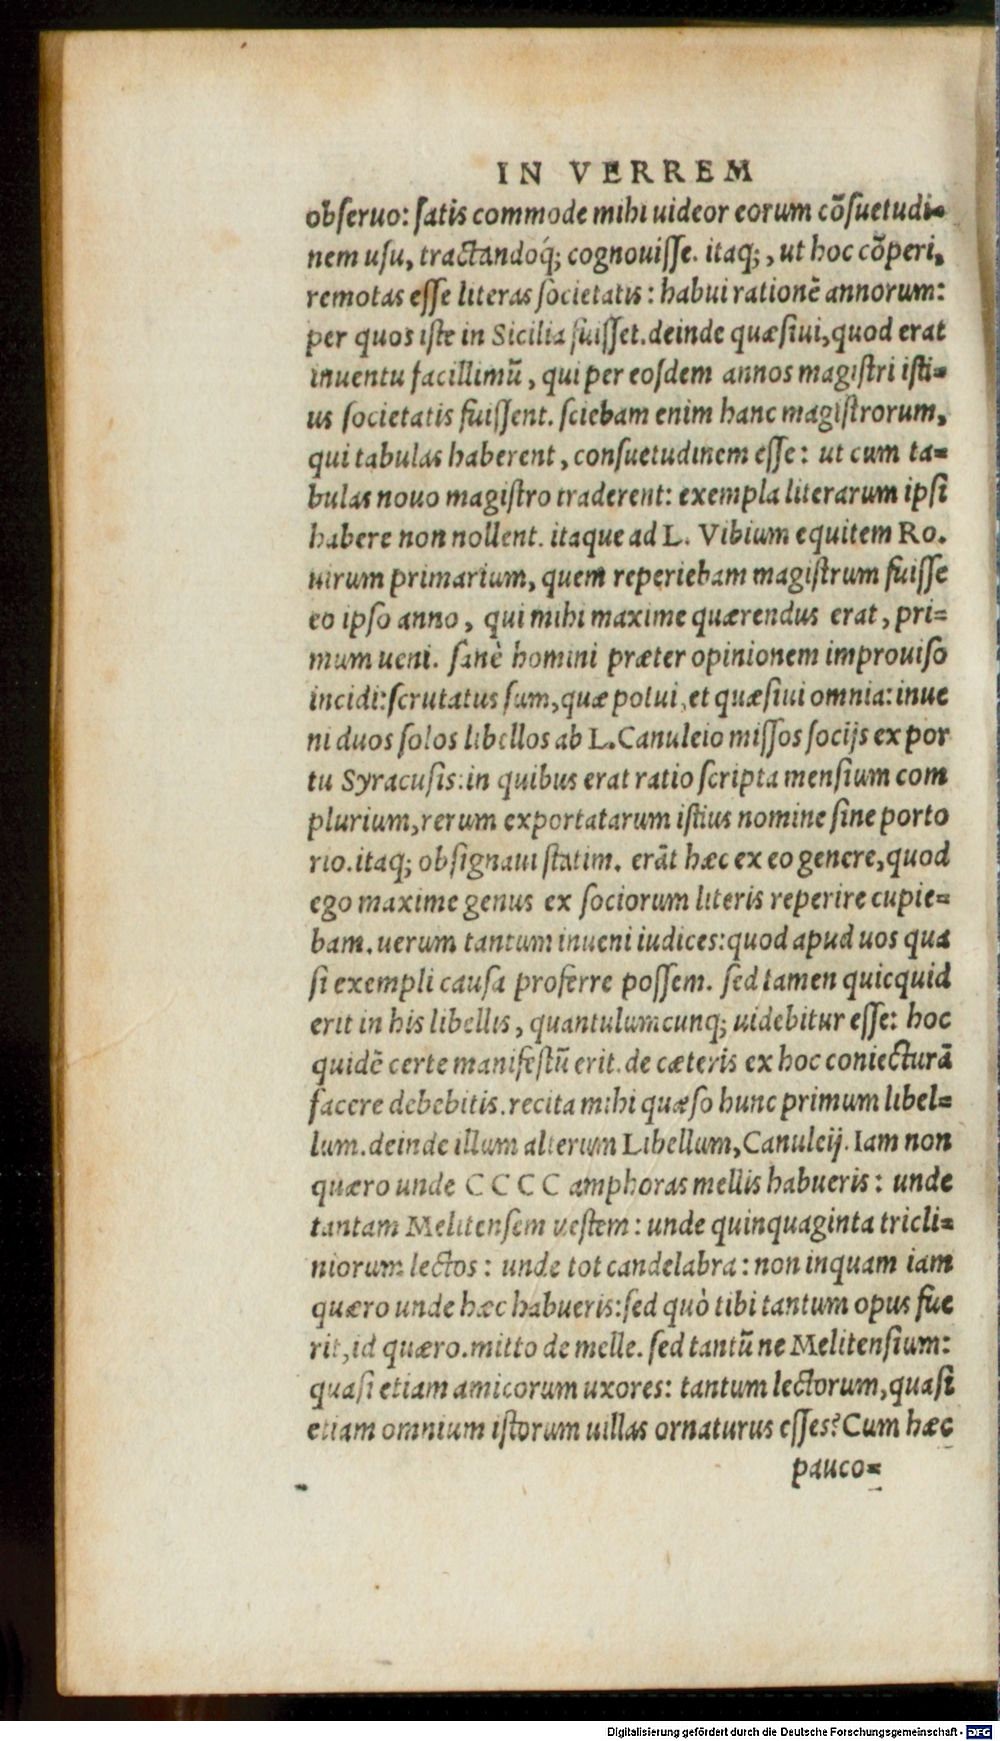 IN VERREM
obseruo: satis commode mihi uideor eorum cõsuetudi=
nem usu, tractandoq́; cognouisse. itaq;, ut hoc cõperi,
remotas esse literas societatis: habui rationẽ annorum:
per quos iste in Sicilia fuisset. deinde quæsiui, quod erat
inuentu facillimũ, qui per eosdem annos magistri isti=
us societatis fuissent. sciebam enim hanc magistrorum,
qui tabulas haberent, consuetudinem esse: ut cum ta=
bulas nouo magistro traderent: exempla literarum ipsi
habere non nollent. itaque ad L. Vibium equitem Ro.
uirum primarium, quem reperiebam magistrum fuisse
eo ipso anno, qui mihi maxime quærendus erat, pri=
mum ueni. sanè homini præter opinionem improuiso
incidi: scrutatus sum, quæ potui, et quæsiui omnia: inue
ni duos solos libellos ab L. Canuleio missos socijs ex por
tu Syracusis: in quibus erat ratio scripta mensium com
plurium, rerum exportatarum istius nomine sine porto
rio. itaq; obsignaui statim. erãt hæc ex eo genere, quod
ego maxime genus ex sociorum literis reperire cupie=
bam. uerum tantum inueni iudices: quod apud uos qua
si exempli causa proferre possem. sed tamen quicquid
erit in his libellis, quantulumcunq; uidebitur esse: hoc
quidẽ certe manifestũ erit. de cæteris ex hoc coniecturã
facere debebitis. recita mihi quæso hunc primum libel=
lum. deinde illum alterum Libellum, Canuleij. Iam non
quæro unde C C C C amphoras mellis habueris: unde
tantam Melitensem vestem: unde quinquaginta tricli=
niorum lectos: unde tot candelabra: non inquam iam
quæro unde hæc habueris: sed quò tibi tantum opus fue
rit, id quæro. mitto de melle. sed tantũ ne Melitensium:
quasi etiam amicorum uxores: tantum lectorum, quasi
etiam omnium istorum uillas ornaturus esses? Cum hæc
pauco=
Digitalisierung gefördert durch die Deutsche Forschungsgemeinschaft - DFG